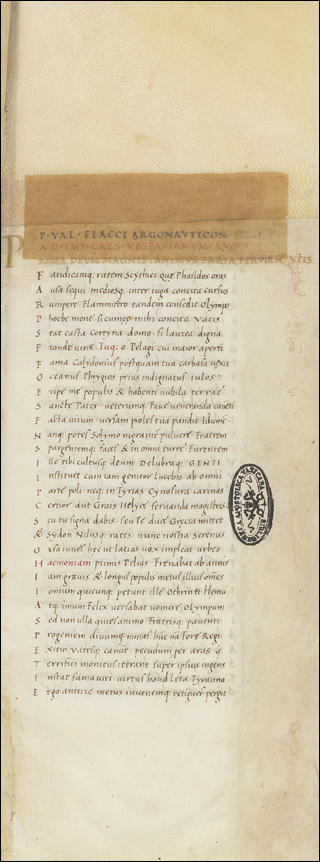 P·VAL·FLACCI ARGONAVTICON
AD·IMP·CAES·VESPASIANVM·AVG·
PRIMA DEVM MAGNIS CANIMVS FRETA PERVIA
Fatidicamq; ratem Scythici que Phasidos oras
Ausa sequi mediosq; inter iuga concita cursus
Rumpere flammifero tandem consedit Olympo
Phoebe mone si cumeę mihi conscia vatis
Stat casta cortyna domo. si laurea digna
Fronde viret. Tuq; o Pelagi cui maior aperti
Fama Calydonius postquam tua carbasa vexit
Oceanus Phrygios prius indignatus iulos
Eripe me populis & habenti nubila terrae
Sancte Pater veterumq; Fave veneranda canenti
Facta virum versam proles tua pandit Idumen
Nanq; potest Solymo nigrante pulvere Fratrem
Spargentemq; faces & in omni turre Furentem
Ille tibi cultusq; deum Delubraq; GENTI
Instituet cum iam genitor lucebis ab omni
Parte poli neq; in Tyrias Cynosura carinas
Certior aut Grais Helyce servanda magistris
Seu tu signa dabis seu Te duce Grecia mittet
& Sydon Nilusq; rates nunc nostra serenus
Orsa iuves hec ut latias vox impleat urbes
Haemoniam primis Pelias Frenabat ab annis
Iam gravis & longus populis metus illius omnes
Ionium quicunq; petunt ille Othrin et Hemum
Atq; imum Felix versabat vomere Olympum
Sed non ulla quies animo Fratrisq; paventi
Progeniem divumq; minas hunc nam Fore Regi
Exitio vatesq; canunt pecudumq; per aras
Terrifici monitus iterant super ipsius ingens
Instat Fama viri virtus haud leta Tyranno
Ergo anteire metus iuvenemq; pergit